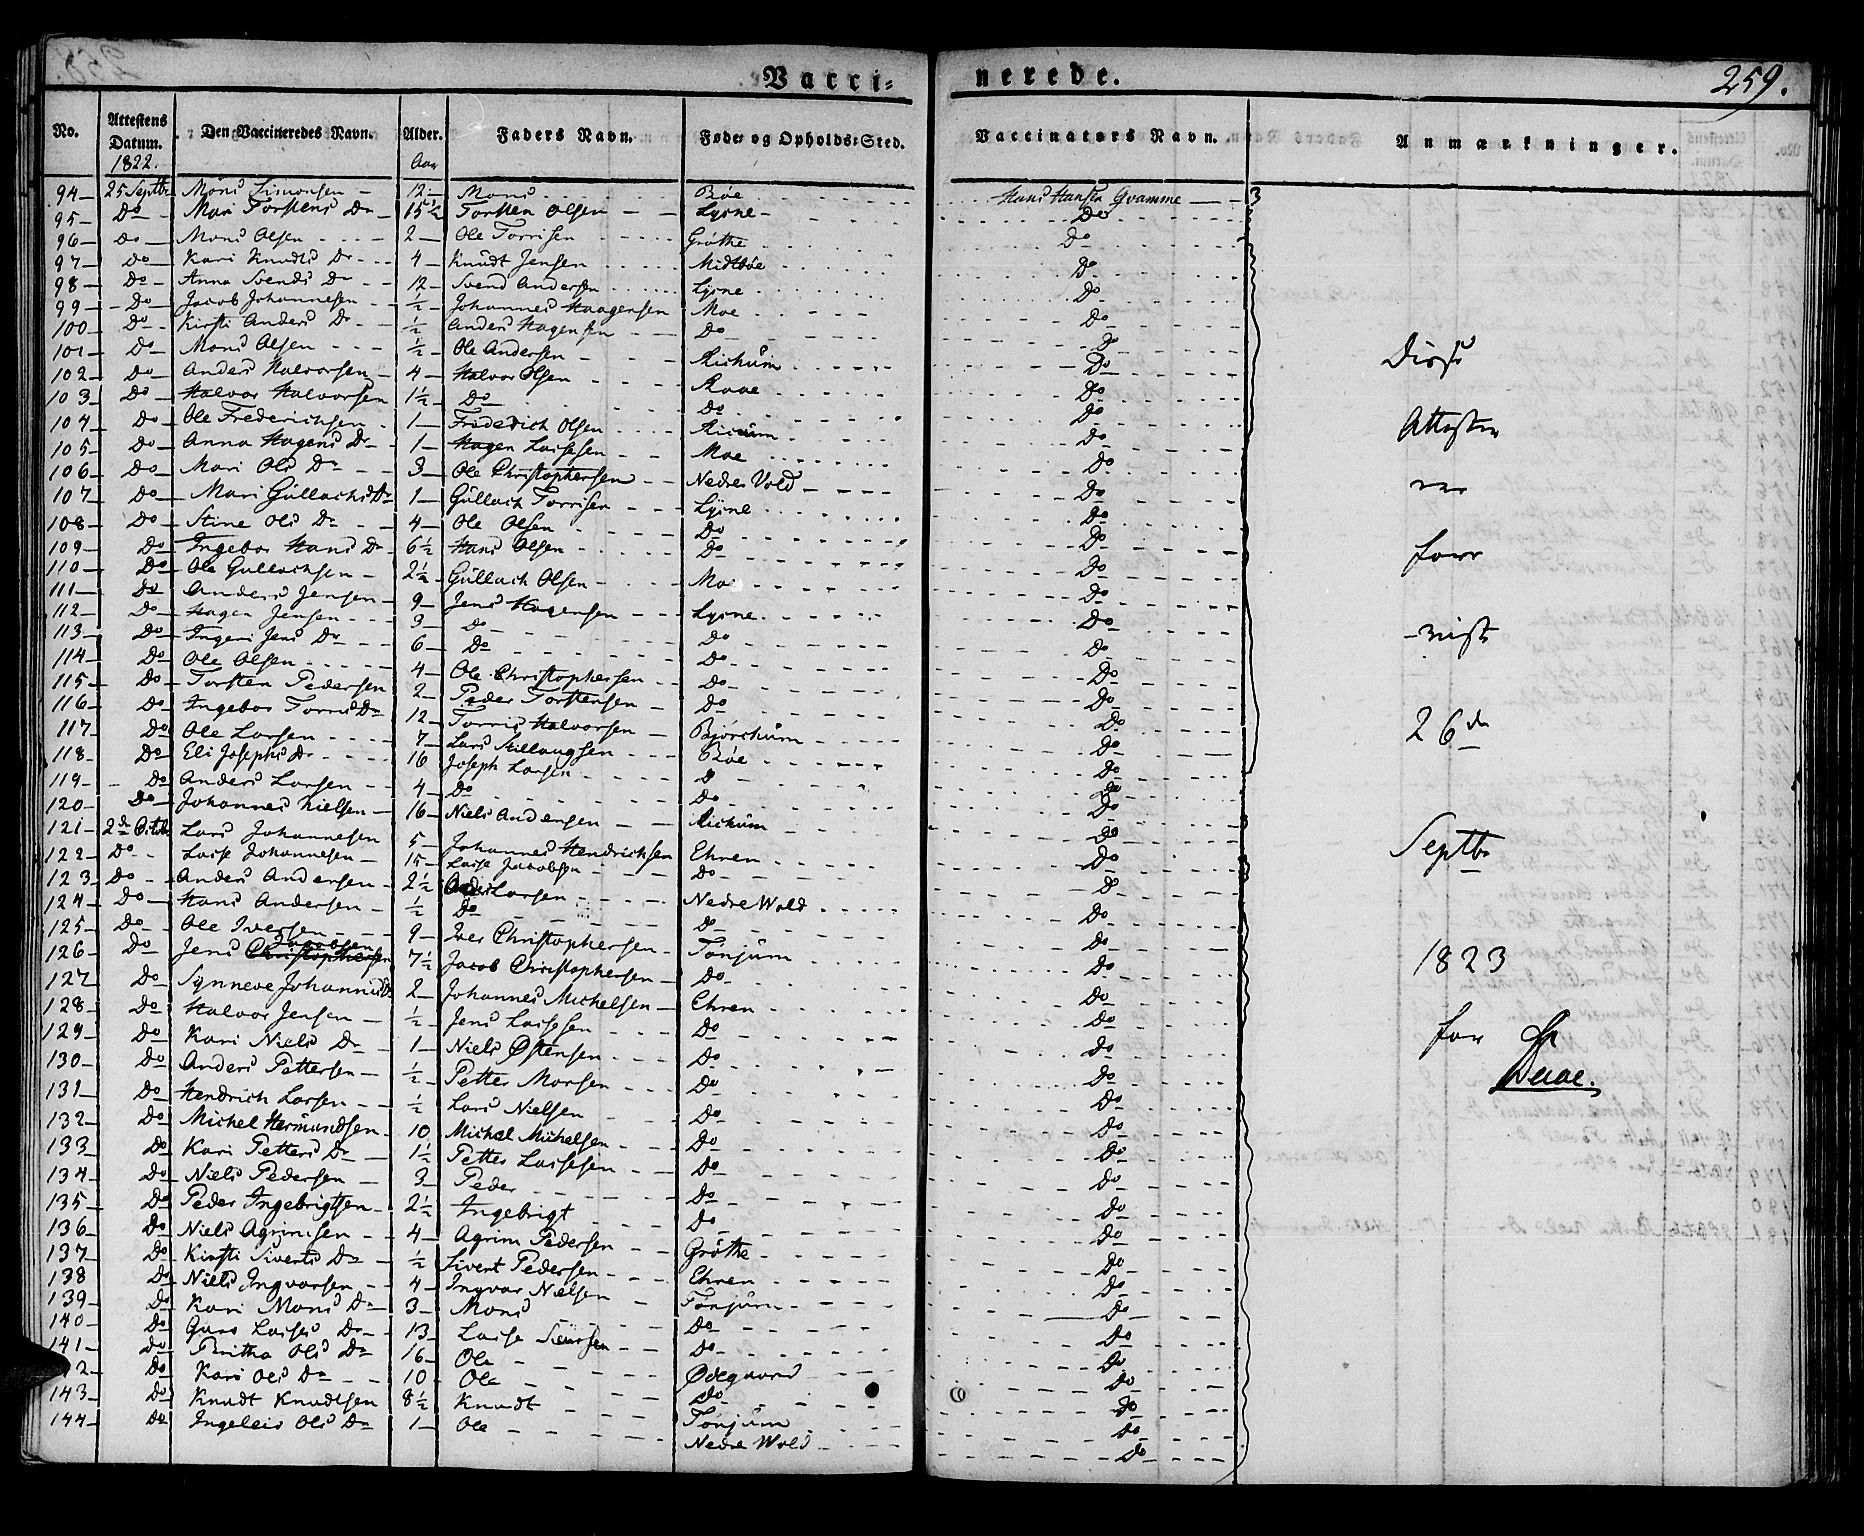 Vaccinerede. 259.
No. Attestens Datum. Den Vaccineredes Navn. Alder. Faders Navn. Føde- og Opholds-Sted. Vaccinators Navn. Anmærkninger.
1822. Aar
94 25 Septbr Mons Simonsen 12 Mons Bøe Hans Hansen Qvamme
95 Do Mari Torstens Dr 15½ Torsten Olsen Lysne Do
96 Do Mons Olsen 2 Ole Torrisen Grøthe Do
97 Do Kari Knudts Dr 4 Knudt Jensen Midtbøe Do
98 Do Anna Svends Dr 12 Svend Andersen Lysne Do
99 Do Jacob Johannesen ½ Johannes Haagensen Moe Do
100 Do Kirsti Anders Dr ½ Anders Hagensen Do Do
101 Do Mons Olsen ½ Ole Andersen Richum Do
102 Do Anders Halvorsen 4 Halvor Olsen Raae Do
103 Do Halvor Halvorsen 1½ Do Do Do
104 Do Ole Frederichsen 1 Friderich Olsen Ricum Do
105 Do Anna Hagens Dr 1 Hagen Lassesen Moe Do
106 Do Mari Ols Dr 3 Ole Christophersen Nedre Vold Do
107 Do Mari Gullachs Dr 1 Gullach Torrisen Lysne Do
108 Do Stine Ols Dr 4 Ole Olsen Do Do
109 Do Ingebor Hans Dr 6½ Hans Olsen Do Do
110 Do Ole Gullachsen 2½ Gullach Olsen Moe Do
111 Do Anders Jensen 9 Jens Hagensen Lysne Do
112 Do Hagen Jensen 3 Do Do Do
113 Do Ingeri Jens Dr 6 Do Do Do
114 Do Ole Olsen 4 Ole Christophersen Do Do
115 Do Torsten Pedersen 2 Peder Torstensen Do Do
116 Do Ingebor Torris Dr 12 Torris Halvorsen Bjørchum Do
117 Do Ole Larsen 7 Lars Bøe Do
118 Do Eli Josephs Dr 16 Joseph Larsen Do Do
119 Do Anders Larsen 4 Do Do Do
120 Do Johannes Nielsen 16 Niels Andersen Richum Do
121 2de Octbr Lars Johannesen 5 Johannes Hendrichsen Ehren Do
122 Do Lasse Johannesen 15 Lasse Jacobsen Do Do
123 Do Anders Andersen 2½ Anders Larsen Nedre Wold Do
124 Do Hans Andersen ½ Do Do Do
125 Do Ole Iversen 9 Iver Christophersen Tønjum Do
126 Do Jens Christophersen Jacobsen 7½ Jacob Christophersen Do Do
127 Do Synneve Johannis Dr 2 Johannes Michelsen Ehren Do
128 Do Halvor Jensen ½ Jens Lassesen Do Do
129 Do Kari Niels Dr 1 Niels Østensen Do Do
130 Do Anders Pettersen ½ Petter Monsen Do Do
131 Do Hendrich Larsen ½ Lars Nielsen Do Do
132 Do Michel Hermundsen 10 Michel Michelsen Do Do
133 Do Kari Petters Dr 1½ Petter Lassesen Do Do
134 Do Niels Pedersen 3 Peder Do Do
135 Do Peder Ingebrigtsen 2½ Ingebrigt Do Do
136 Do Niels Agrimsen 4 Agrim Pedersen Grøthe Do
137 Do Kirsti Siverts Dr ½ Sivert Pedersen Ehren Do
138 Do Niels Ingvarsen 4 Ingvar Nielsen Tønjum Do
139 Do Kari Mons Dr 3 Mons Do Do
140 Do Guro Lasses Dr 13 Lasse Do Do
141 Do Britha Ols Dr 16 Ole Ødegaard Do
142 Do Kari Ols Dr 10 Ole Do Do
143 Do Knudt Knudtsen 8½ Knudt Tønjum Do
144 Do Ingeleis Ols Dr 1 Ole Nedre Wold Do
Disse
Attester
ere
fore
-viist
26de
Septbr
1823
for